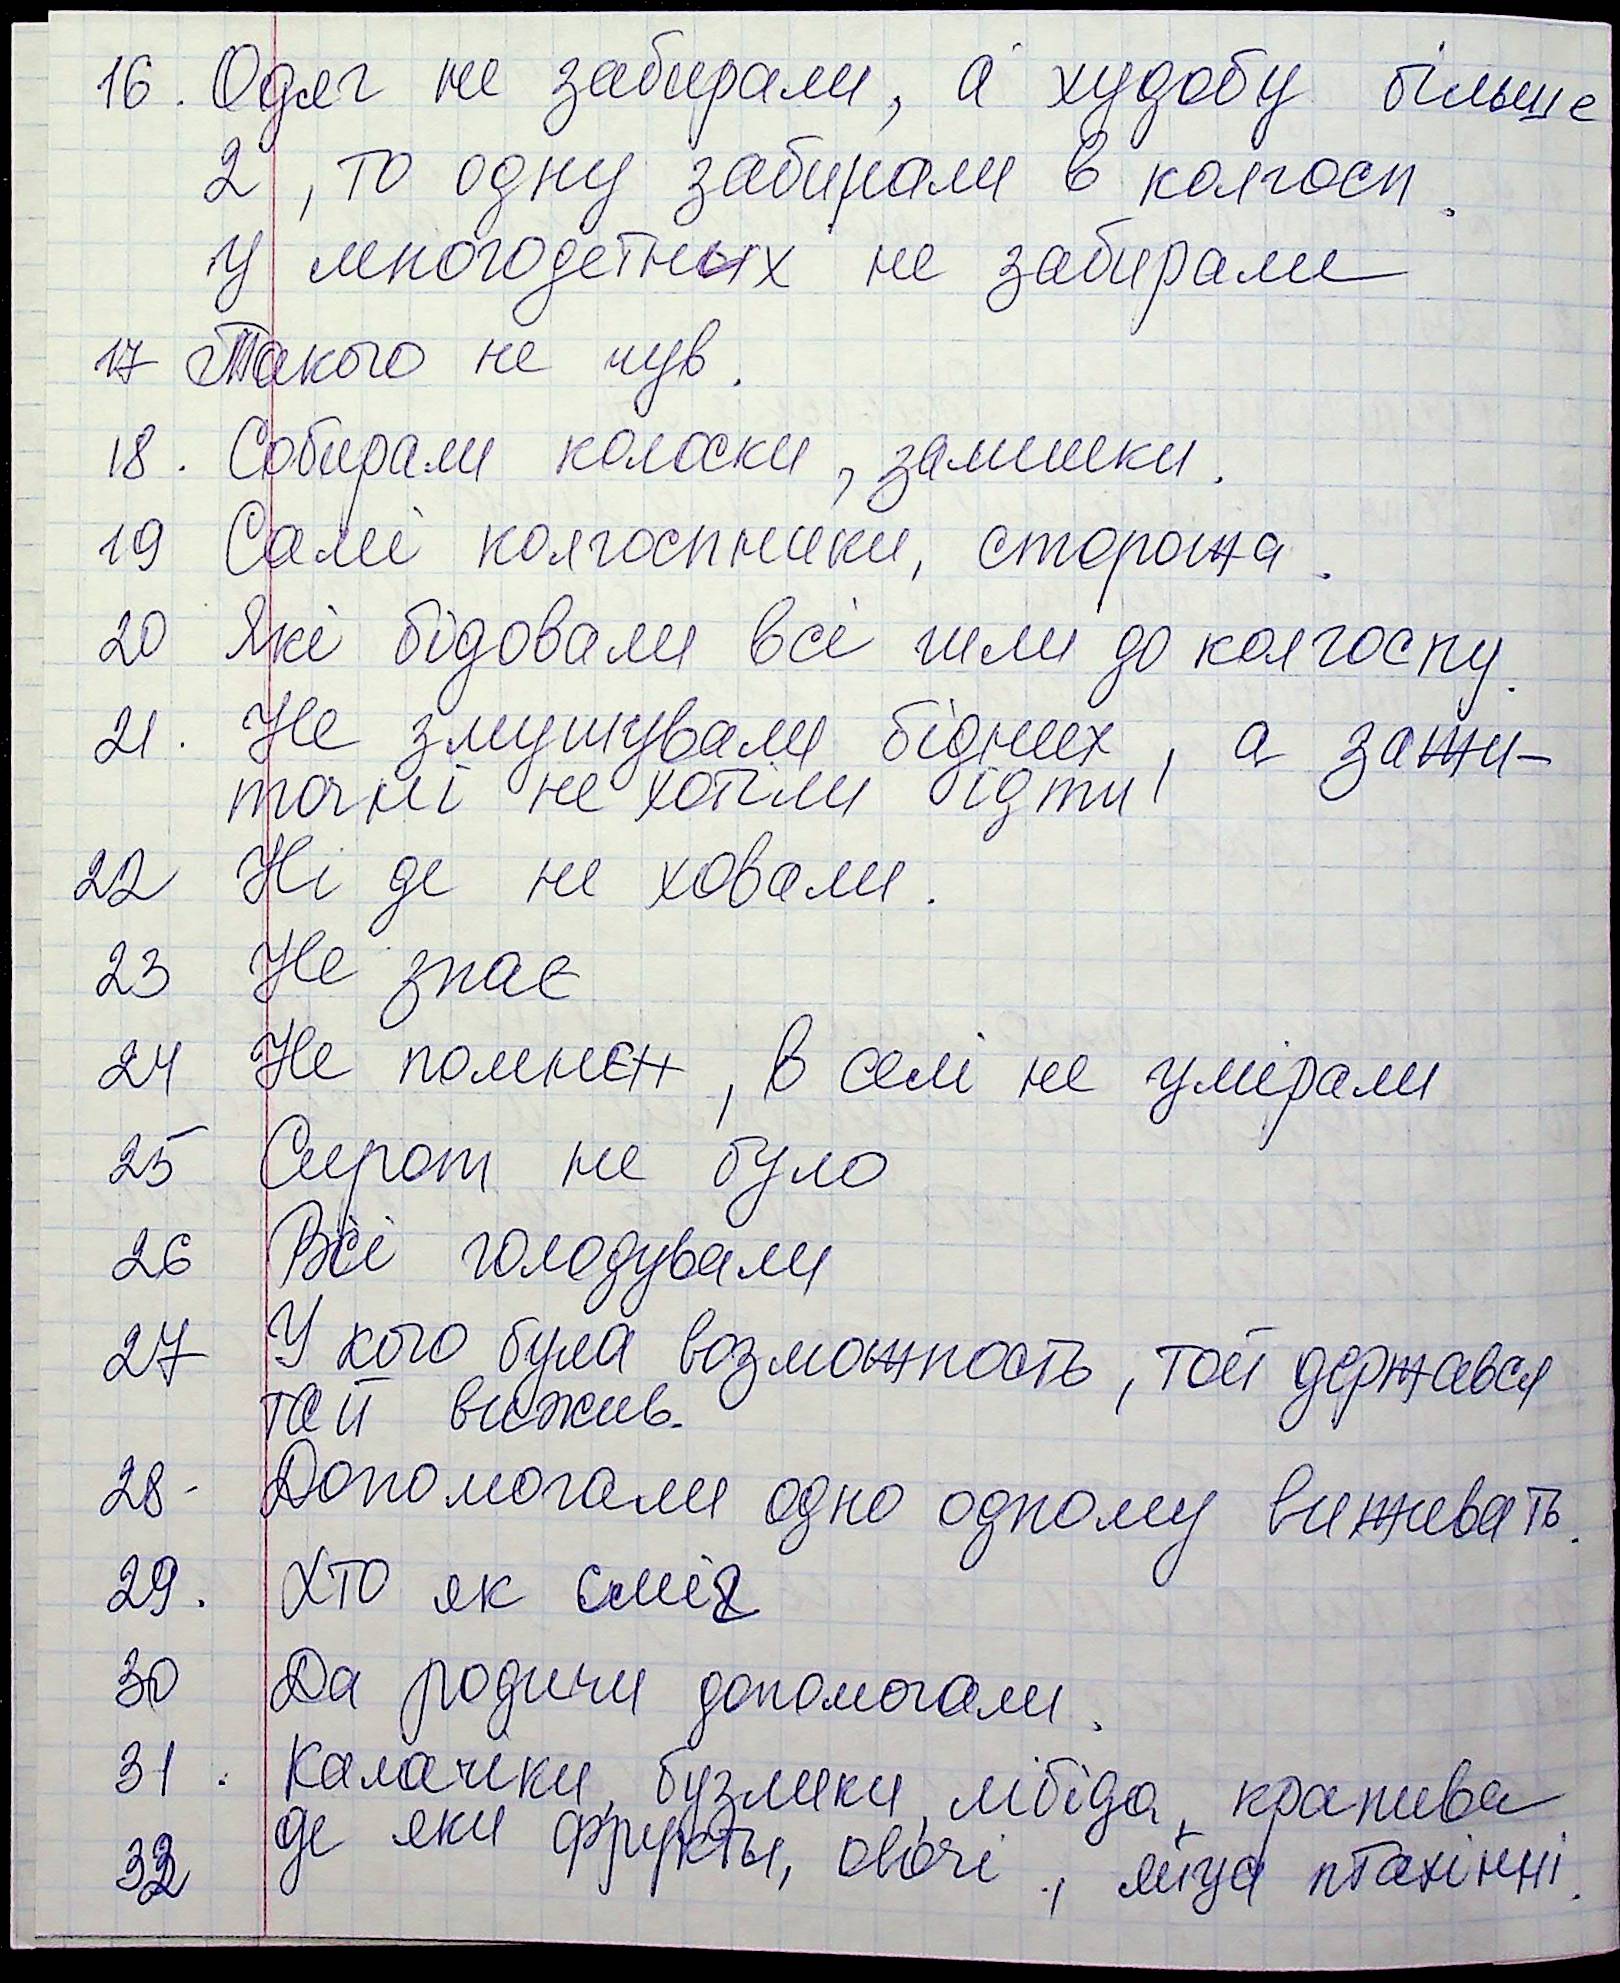 16. Одяг не забирали, а худобу більше
2, то одну забирали в колгосп.
У многодетных не забирали
17 Такого не чув.
18. Собирали колоски, залишки.
19 Самі колгоспники, сторожа.
20 Які бідовали всі йшли до колгоспу.
21. Не змушували бідних, а зажи-
точні не хотіли ідти!
22 Ні де не ховали.
23 Не знає
24 Не помнєн, в селі не умірали
25 Сирот не було
26 Всі голодували
27 У кого була возможность, той держався
тай вижив.
28. Допомогали одно одному виживать.
29. Хто як зміг
30 Да родичи допомогали.
31. Калачики, бузлики, лібіда, крапива
де яки фрукты, овочі, яйца птахінні.
32